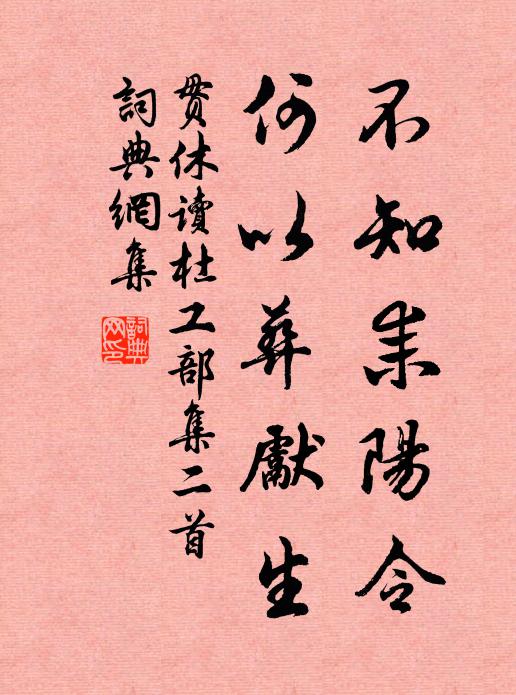 不知耒陽令
何以葬獻生
貫休讀杜工部集二首
詞典網集
詞典網印